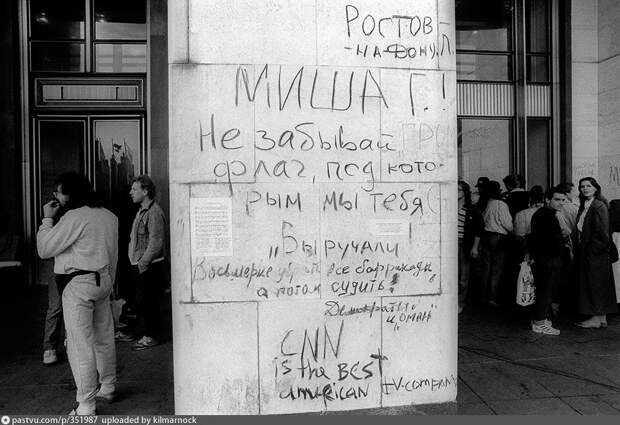 Ростов-
-на-Дону.
МИША Г.!
Не забывай
флаг, под кото-
рым мы тебя
„Выручали!
все баррикады
а потом судить!
Демократы
CNN
is the BEST
american TV-company
pastvu.com/p/351987 uploaded by kilmarnock